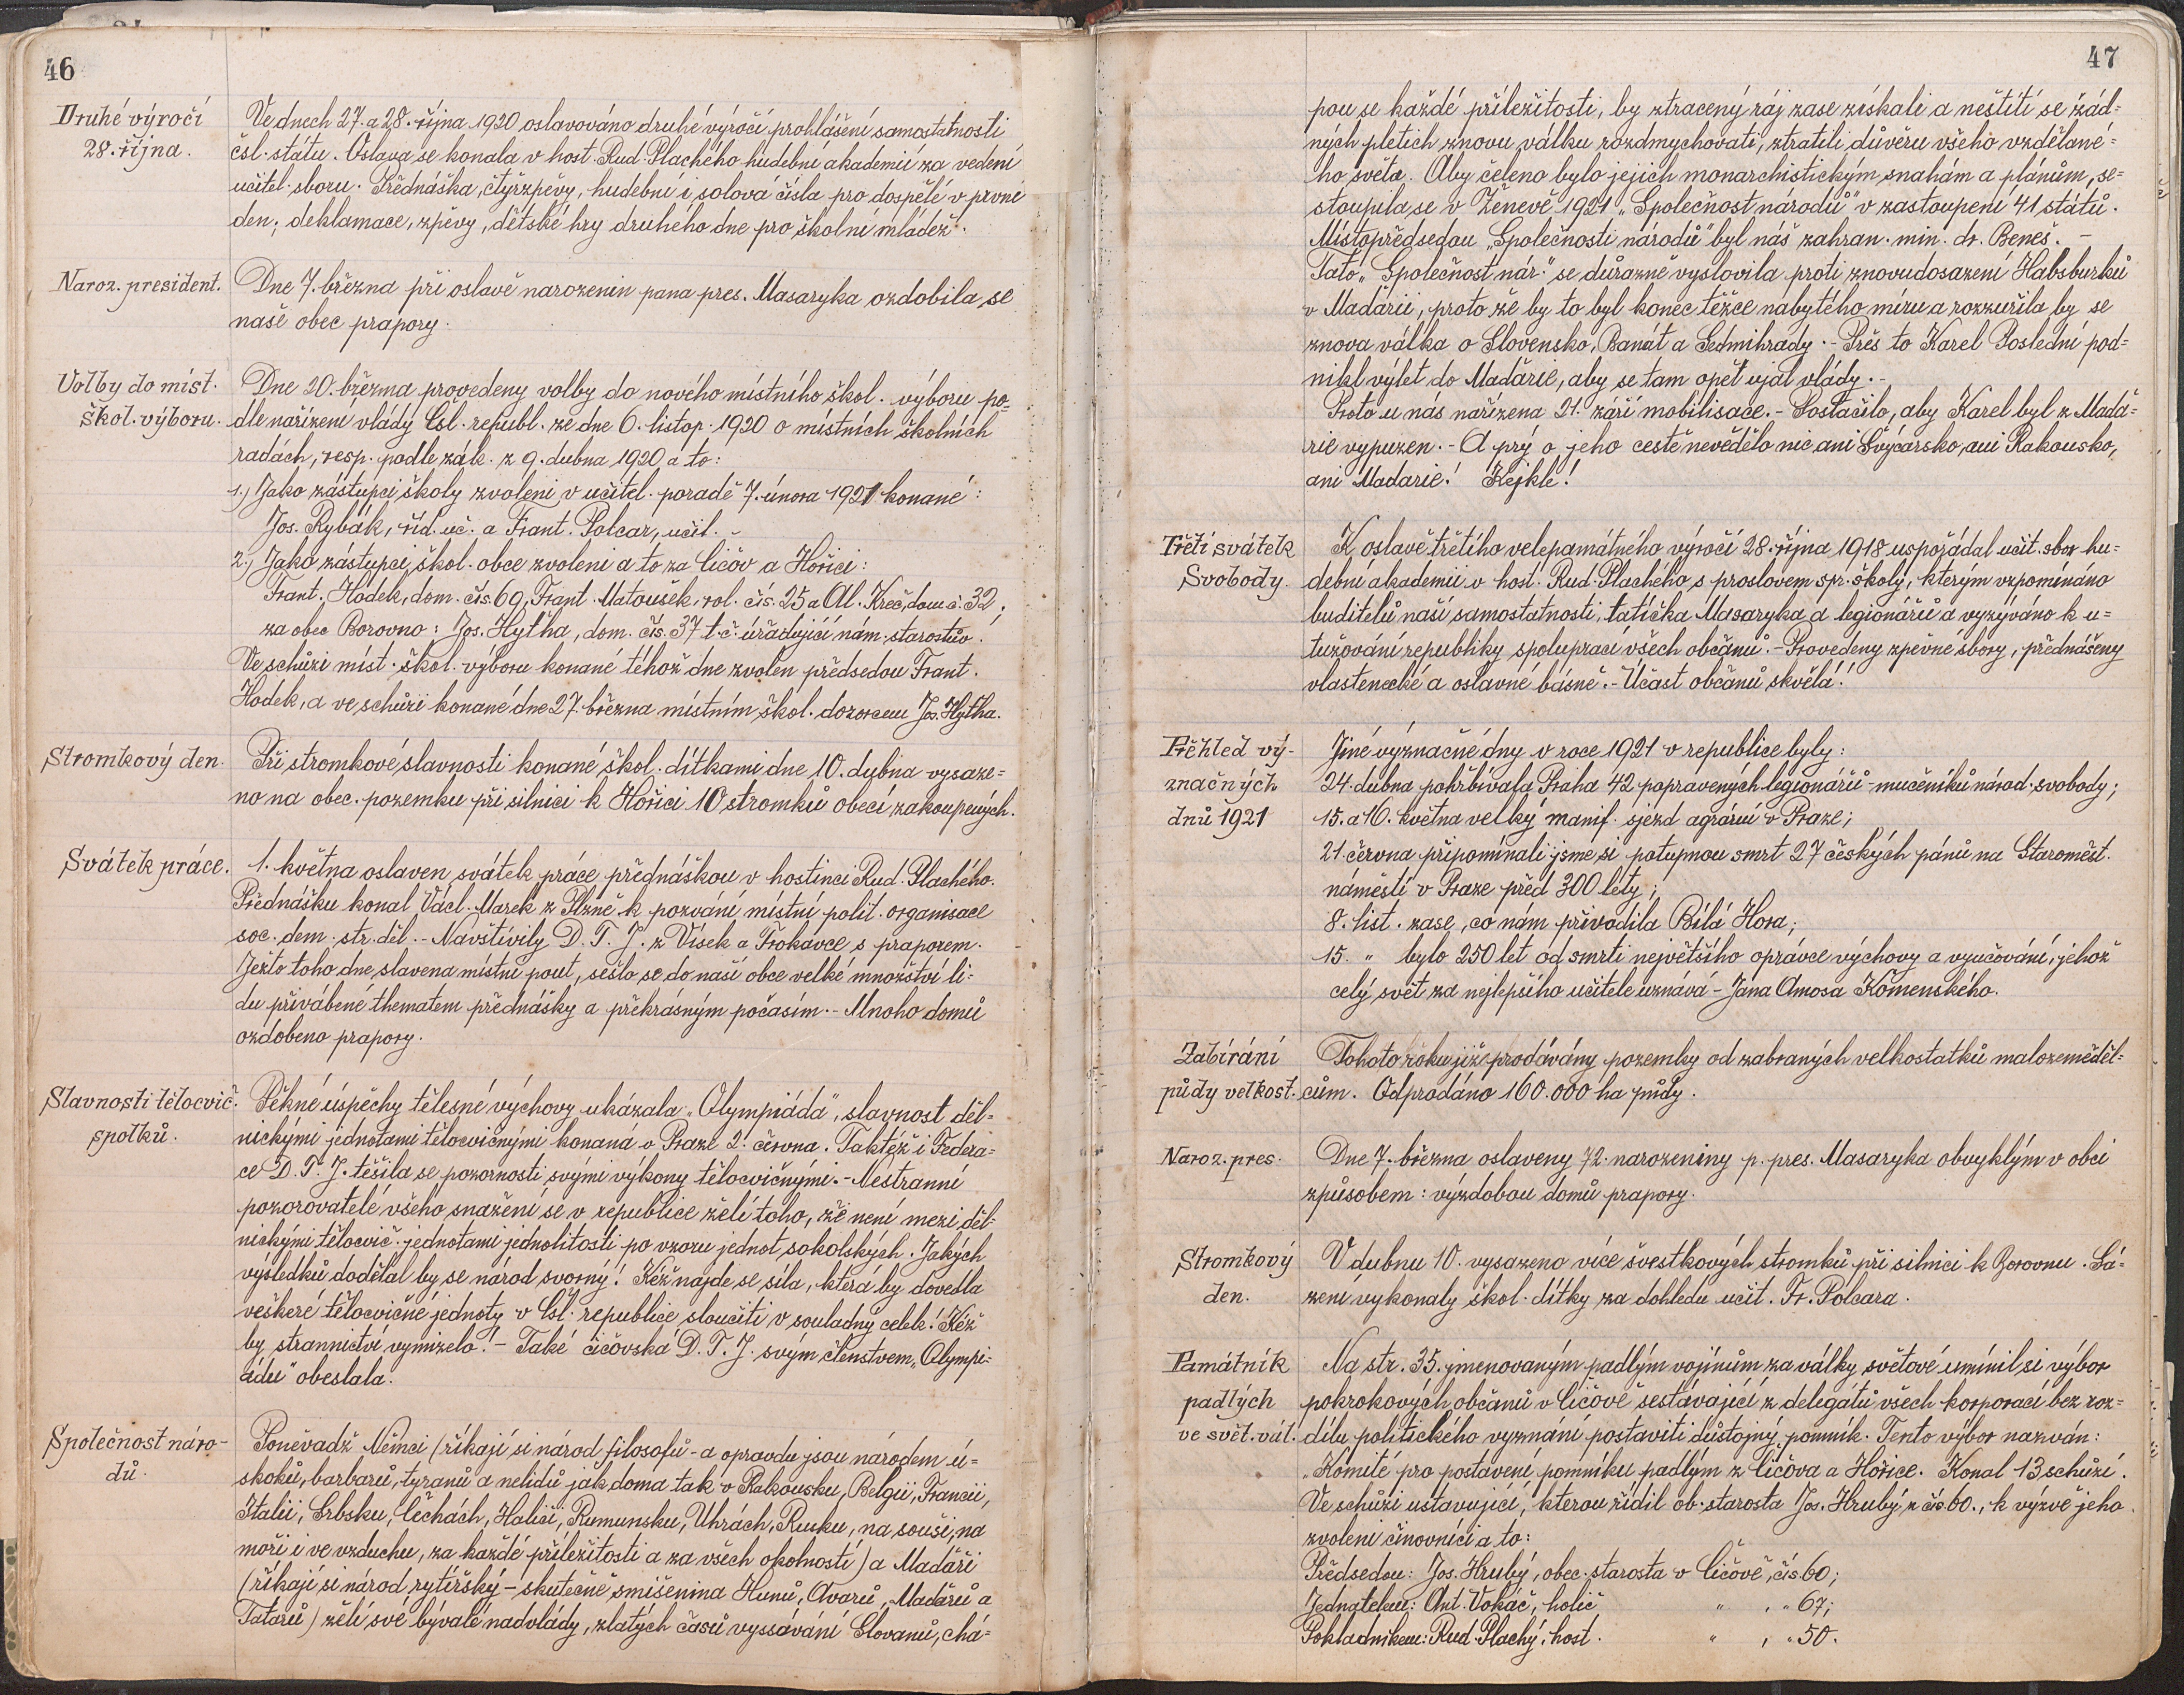 46
Druhé výročí
28. října.
Ve dnech 27. a 28. října 1920 oslavováno druhé výročí prohlášení samostatnosti
čsl. státu. Oslava se konala v host. Rud. Plachého hudební akademií za vedení
učitel. sboru. Přednáška, čtyřzpěvy, hudební i solová čísla pro dospělé v první
den; deklamace, zpěvy, dětské hry druhého dne pro školní mládež.
Naroz. president.
Dne 7. března při oslavě narozenin pana pres. Masaryka ozdobila se
naše obec prapory.
Volby do míst.
škol. výboru.
Dne 20. března provedeny volby do nového místního škol. výboru po=
dle nařízení vlády Čsl. republ. ze dne 6. listop. 1920 o místních školních
radách, resp. podle zák. z 9. dubna 1920 a to:
1.) Jako zástupci školy zvoleni v učitel. poradě 7. února 1921 konané:
Jos. Rybák, říd. uč. a Frant. Polcar, učit. -
2.) Jako zástupci škol. obce zvoleni a to za Čičov a Hořici:
Frant. Hodek, dom. čís. 69, Frant. Matoušek, rol. čís. 25 a Al. Kreč, dom. č. 32;
za obec Borovno: Jos. Hytha, dom. čís. 37 t. č. úřadující nám. starostův.
Ve schůzi míst. škol. výboru konané téhož dne zvolen předsedou Frant.
Hodek, a ve schůzi konané dne 27. března místním škol. dozorcem Jos. Hytha.
Stromkový den.
Při stromkové slavnosti konané škol. dítkami dne 10. dubna vysaze=
no na obec. pozemku při silnici k Hořici 10 stromků obecí zakoupených.
Svátek práce.
1. května oslaven svátek práce přednáškou v hostinci Rud. Plachého.
Přednášku konal Václ. Marek z Plzně k pozvání místní polit. organisace
soc. dem. str. děl. - Navštívily D. T. J. z Vísek a Trokavce s praporem.
Ježto toho dne slavena místní pouť, sešlo se do naší obce velké množství li-
du přivábené thematem přednášky a překrásným počasím. - Mnoho domů
ozdobeno prapory.
Slavnosti tělocvič.
spolků.
Pěkné úspěchy tělesné výchovy ukázala „Olympiáda", slavnost děl=
nickými jednotami tělocvičnými konaná v Praze 2. června. Taktéž i Federa=
ce D. T. J. těšila se pozornosti svými výkony tělocvičnými. - Nestranní
pozorovatelé všeho snažení se v republice želí toho, že není mezi děl-
nickými tělocvič. jednotami jednolitosti po vzoru jednot sokolských. Jakých
výsledků dodělal by se národ svorný! Kéž najde se síla, která by dovedla
veškeré tělocvičné jednoty v Čsl. republice sloučiti v souladný celek! Kéž
by strannictví vymizelo! - Také čičovská D. T. J. svým členstvem „Olympi=
ádu" obeslala.
Společnost náro-
dů.
Poněvadž Němci (říkají si národ filosofů - a opravdu jsou národem ú=
skoků, barbarů, tyranů a nelidů jak doma tak v Rakousku, Belgii, Francii,
Italii, Srbsku, Čechách, Haliči, Rumunsku, Uhrách, Rusku, na souši, na
moři i ve vzduchu, za každé příležitosti a za všech okolností) a Maďaři
(říkají si národ rytířský - skutečně smíšenina Hunů, Avarů, Maďarů a
Tatarů) želí své bývalé nadvlády, zlatých časů vyssávání Slovanů, chá=
47
pou se každé příležitosti, by ztracený ráj zase získali a neštítí se žád=
ných pletich znovu válku rozdmychovati, ztratili důvěru všeho vzdělané=
ho světa. Aby čeleno bylo jejich monarchistickým snahám a plánům, se=
stoupila se v Ženevě 1921 „Společnost národů" v zastoupení 41 států.
Místopředsedou „Společnosti národů" byl náš zahran. min. dr. Beneš. -
Tato „Společnost nár." se důrazně vyslovila proti znovudosazení Habsburků
v Maďarii, proto že by to byl konec těžce nabytého míru a rozzuřila by se
znova válka o Slovensko, Banát a Sedmihrady. - Přes to Karel Poslední pod=
nikl výlet do Maďarie, aby se tam opět ujal vlády. -
Proto u nás nařízena 21. září mobilisace. - Postačilo, aby Karel byl z Maďa=
rie vypuzen. - A prý o jeho cestě nevědělo nic ani Švýcarsko, ani Rakousko,
ani Maďarie! Kejkle!
Třetí svátek
Svobody.
K oslavě třetího velepamátného výročí 28. října 1918 uspořádal učit. sbor hu=
dební akademii v host. Rud. Plachého s proslovem spr. školy, kterým vzpomínáno
buditelů naší samostatnosti, tatíčka Masaryka a legionářů a vyzýváno k u=
tužování republiky spoluprací všech občanů. - Provedeny zpěvné sbory, přednášeny
vlastenecké a oslavné básně. - Účast občanů skvělá!
Přehled vý-
značných
dnů 1921
Jiné význačné dny v roce 1921 v republice byly:
24. dubna pohřbívala Praha 42 popravených legionářů - mučeníků národ. svobody;
15. a 16. května velký manif. sjezd agrární v Praze;
21. června připomínali jsme si potupnou smrt 27 českých pánů na Staroměst.
náměstí v Praze před 300 léty;
8. list. zase, co nám přivodila Bílá Hora;
15. „ bylo 250 let od smrti největšího oprávce výchovy a vyučování, jehož
celý svět za nejlepšího učitele uznává - Jana Amosa Komenského.
Zabírání
půdy velkost.
Tohoto roku již prodávány pozemky od zabraných velkostatků malozeměděl=
cům. Odprodáno 160.000 ha půdy.
Naroz. pres.
Dne 7. března oslaveny 72. narozeniny p. pres. Masaryka obvyklým v obci
způsobem: výzdobou domů prapory.
Stromkový
den.
V dubnu 10. vysazeno více švestkových stromků při silnici k Borovnu. Sá=
zení vykonaly škol. dítky za dohledu učit. Fr. Polcara.
Památník
padlých
ve svět. vál.
Na str. 35. jmenovaným padlým vojínům za války světové umínil si výbor
pokrokových občanů v Čičově sestávající z delegátů všech korporací bez roz=
dílu politického vyznání postaviti důstojný pomník. Tento výbor nazván:
„Komité pro postavení pomníku padlým z Čičova a Hořice. Konal 13 schůzí.
Ve schůzi ustavující, kterou řídil ob. starosta Jos. Hrubý z čís 60., k výzvě jeho
zvoleni činovníci a to:
Předsedou: Jos. Hrubý, obec. starosta v Čičově, čís 60;
Jednatelem: Ant. Vokáč, holič „ , „ 67;
Pokladníkem: Rud. Plachý, host. „ , „ 50.